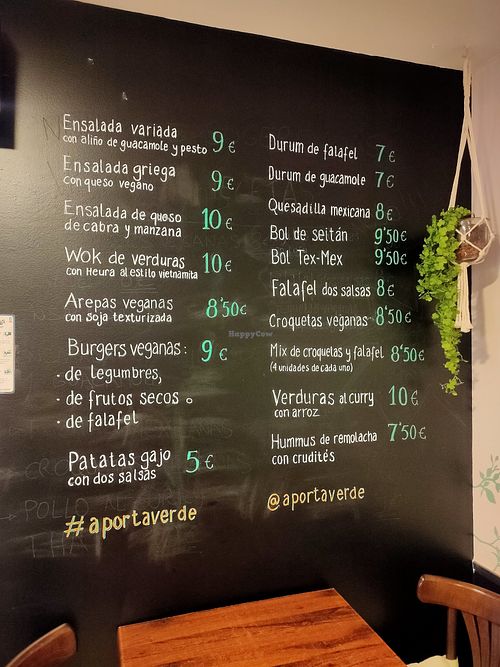 Ensalada variada
con aliño de guacamole y pesto 9€
Ensalada griega
con queso vegano 9€
Ensalada de queso
de cabra y manzana 10€
Wok de verduras
con Heura al estilo vietnamita 10€
Arepas veganas
con soja texturizada 8'50€
Burgers veganas: 9€
· de legumbres,
· de frutos secos o
· de falafel
Patatas gajo
con dos salsas 5€
#aportaverde
Durum de falafel 7€
Durum de guacamole 7€
Quesadilla mexicana 8€
Bol de seitán 9'50€
Bol Tex-Mex 9'50€
Falafel dos salsas 8€
Croquetas veganas 8'50€
Mix de croquetas y falafel 8'50€
(4 unidades de cada uno)
Verduras al curry 10€
con arroz
Hummus de remolacha 7'50€
con crudités
@aportaverde
HappyCow